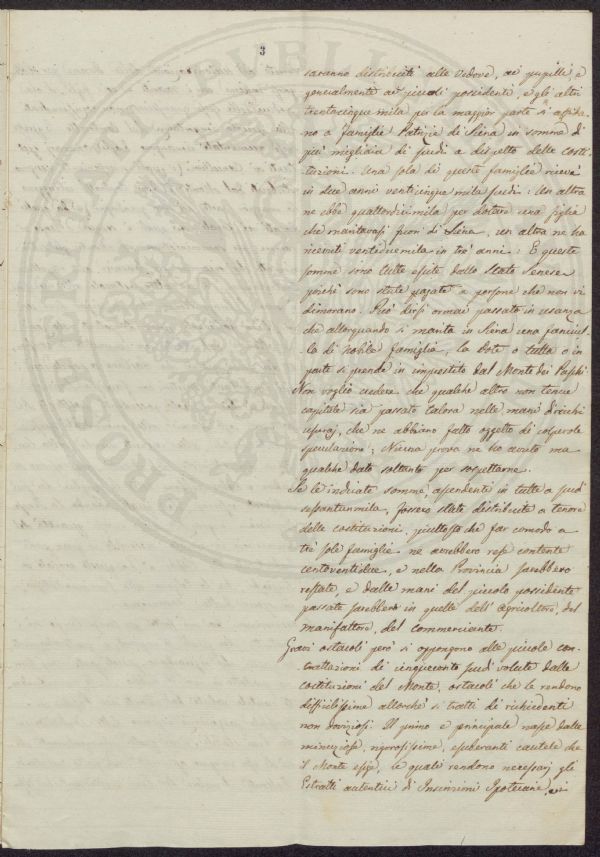 3
saranno distribuiti alle Vedove, ai pupilli e
genialmente ai piccoli possidenti, e gli altri
trentacinque mila per la maggior parte si affida=
no a famiglie Patrizie di Siena in somme di
più migliaia di scudi a dispetto delle costi=
tuzioni. Una sola di queste famiglie riceve
in due anni venticinque mila scudi: Un altra
ne ebbe quattordicimila per dotare una figlia
che maritavasi fuori di Siena, un altra ne ha
ricevuti ventiduemila in trè anni: E queste
somme sono tutte escite dallo Stato Senese
poichè sono state pagate a persone che non vi
dimorano. Può dirsi ormai passato in usanza
che allorquando si marita in Siena una fanciul=
la di nobile famiglia, la dote o tutta o in
parte si prende in imprestito dal Monte dei Paschi
Non voglio credere che qualche altro non tenue
capitale sia passato talora nelle mani di ricchi
usuraj, che ne abbiano fatto oggetto di colpevole
speculazione; Niuna prova ne ho avuto ma
qualche dato soltanto per sospettarne.
Se le indicate somme, ascendenti in tutte a scudi
sessantunmila, fossero state distribuite a tenore
delle costituzioni, piuttosto che far comodo a
trè sole famiglie ne avrebbero rese contente
centoventidue, e nella Provincia sarebbero
restate, e dalle mani del piccolo possidente
passate sarebbero in quelle dell'Agricoltore, del
manifattore, del commerciante.
Gravi ostacoli però si oppongono alle piccole con=
trattazioni di cinquecento scudi volute dalle
costituzioni del Monte, ostacoli che le rendono
difficilissime allorchè si tratti di richiedenti
non doviziosi. Il primo e principale nasce dalle
minuziose, rigorosissime, esuberanti cautele che
il Monte esige, le quali rendono necessarj gli
Estratti autentici di Inscrizioni Ipotecarie,